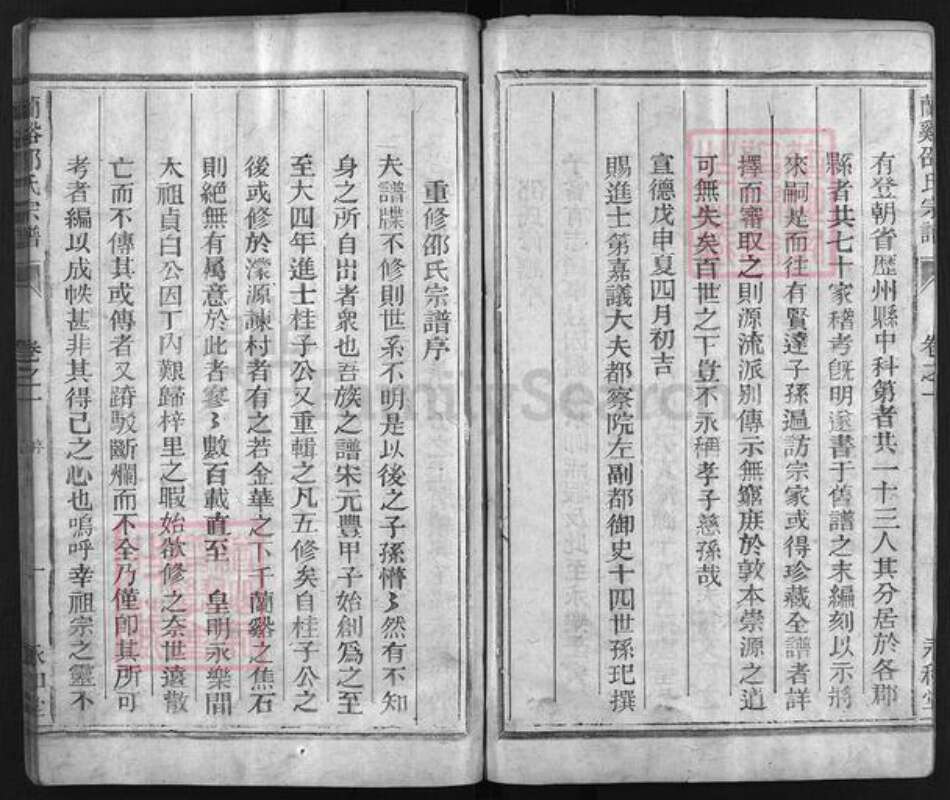 蘭谿邵氏宗譜
卷之一
永和堂
有登朝省歷州縣中科第者共一十三人其分居於各郡
縣者共七十家稽考既明遂書于舊譜之末編刻以示將
來嗣是而往有賢達子孫遍訪宗家或得珍藏全譜者詳
擇而審取之則源流派別傳示無窮庶於敦本崇源之道
可無失矣百世之下豈不永稱孝子慈孫哉
宣德戊申夏四月初吉
賜進士第嘉議大夫都察院左副都御史十四世孫玘撰
重修邵氏宗譜序
夫譜牒不修則世系不明是以後之子孫懵〻然有不知
身之所自出者衆也吾族之譜宋元豐甲子始創為之至
至大四年進士桂子公又重輯之凡五修矣自桂子公之
後或修於濛源諫村者有之若金華之下千蘭谿之焦石
則絕無有屬意於此者寥〻數百載直至 皇明永樂間
太祖貞白公因丁內艱歸梓里之暇始欲修之奈世遠散
亡而不傳其或傳者又踳駁斷爛而不全乃僅即其所可
考者編以成帙甚非其得已之心也嗚呼幸祖宗之靈不
蘭谿邵氏宗譜
卷之一
一
永和堂
FamilySearch